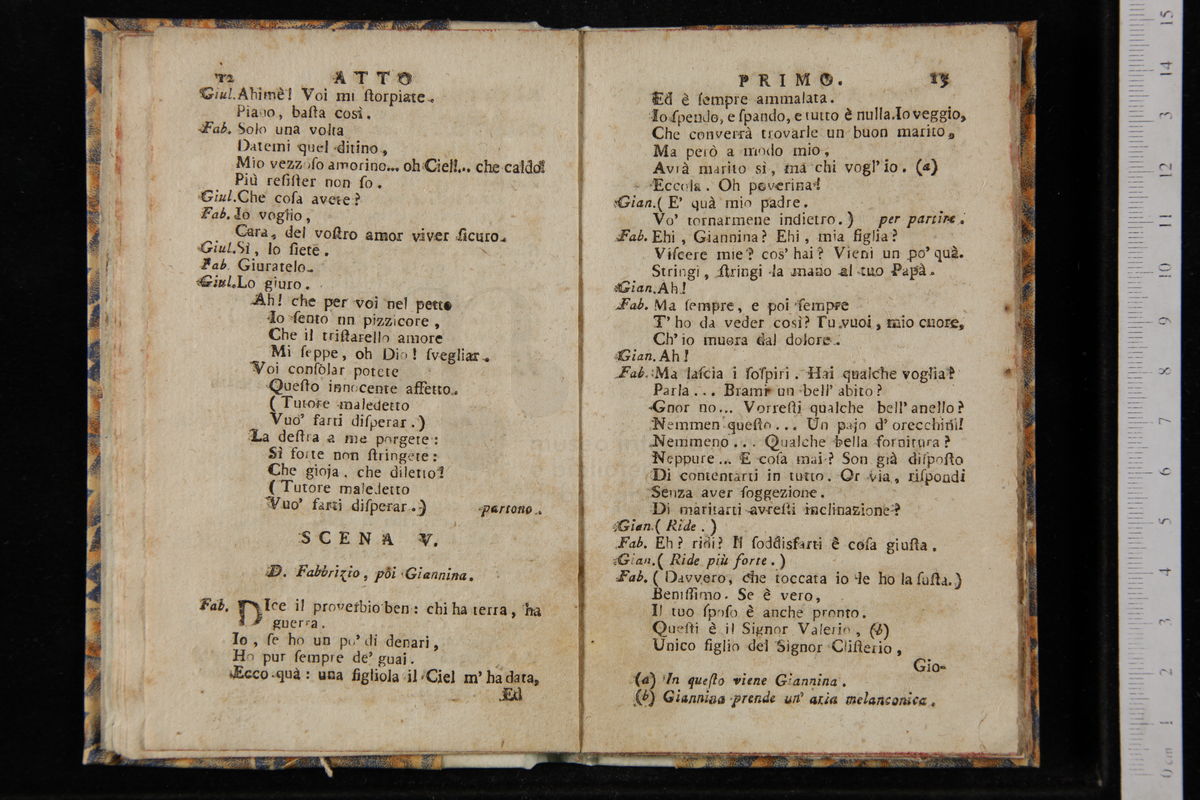 12 ATTO
Giul. Ahimè! Voi mi ſtorpiate.
Piano, baſta così.
Fab. Solo una volta
Datemi quel ditino,
Mio vezzoſo amorino... oh Ciel!... che caldo!
Più reſiſter non ſo.
Giul. Che coſa avete?
Fab. Io voglio,
Cara, del voſtro amor viver ſicuro.
Giul. Sì, lo ſiete.
Fab. Giuratelo.
Giul. Lo giuro.
Ah! che per voi nel petto
Io ſento nn pizzicore,
Che il triſtarello amore
Mi ſeppe, oh Dio! ſvegliar.
Voi conſolar potete
Queſto innocente affetto.
(Tutore maledetto
Vuo' farti diſperar.)
La deſtra a me porgete:
Sì forte non ſtringete:
Che gioja, che diletto!
(Tutore maledetto
Vuo' farti diſperar.) partono.
SCENA V.
D. Fabbrizio, poi Giannina.
Fab. DIce il proverbio ben: chi ha terra, ha
guerra.
Io, ſe ho un po' di denari,
Ho pur ſempre de' guai.
Ecco quà: una figliola il Ciel m' ha data,
Ed
PRIMO. 13
Ed è ſempre ammalata.
Io ſpendo, e ſpando, e tutto è nulla. Io veggio,
Che converrà trovarle un buon marito,
Ma però a modo mio,
Avrà marito sì, ma chi vogl' io. (a)
Eccola. Oh poverina!
Gian. (E' quà mio padre.
Vo' tornarmene indietro.) per partire.
Fab. Ehi, Giannina? Ehi, mia figlia?
Viſcere mie? cos' hai? Vieni un po' quà.
Stringi, ſtringi la mano al tuo Papà.
Gian. Ah!
Fab. Ma ſempre, e poi ſempre
T' ho da veder così? Tu vuoi, mio cuore,
Ch' io muora dal dolore.
Gian. Ah!
Fab. Ma laſcia i ſoſpiri. Hai qualche voglia?
Parla... Brami un bell' abito?
Gnor no... Vorreſti qualche bell' anello?
Nemmen queſto... Un pajo d' orecchini!
Nemmeno... Qualche bella fornitura?
Neppure... E coſa mai? Son già diſpoſto
Di contentarti in tutto. Or via, riſpondi
Senza aver ſoggezione.
Di maritarti avreſti inclinazione?
Gian. (Ride.)
Fab. Eh? ridi? Il ſoddisfarti è coſa giuſta.
Gian. (Ride più forte.)
Fab. (Davvero, che toccata io le ho la ſuſta.)
Beniſſimo. Se è vero,
Il tuo ſpoſo è anche pronto.
Queſti è il Signor Valerio, (b)
Unico figlio del Signor Cliſterio,
Gio-
(a) In queſto viene Giannina.
(b) Giannina prende un' aria melanconica.